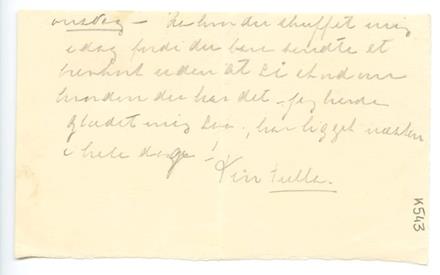 onsdag – Da har du skuffet mig
idag fordi du bare sendte et
brevkort uden at si et ord om
hvordan du har det. Jeg havde
glædet mig saa, har ligget næsten
i hele dage!
Din Tulla.
K543